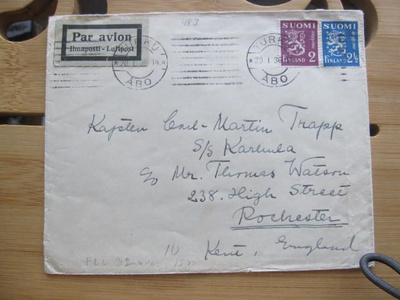 Par avion
Ilmaposti - Luftpost
483
TURKU
ÅBO
TURKU
20. I. 36
ÅBO
SUOMI
FINLAND 2
SUOMI
FINLAND 2½
Kapten Carl-Martin Trapp
S/S Karlinka
c/o Mr. Thomas Watson
238. High Street
Rochester
Kent, England
10